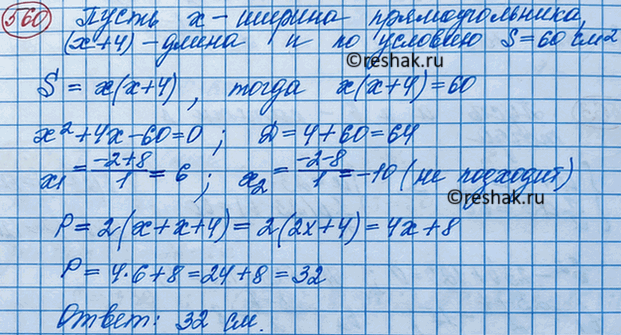 560 Пусть x - ширина прямоугольника,
(x+4) - длина и по условию S=60 см²
©reshak.ru
S = x(x+4), тогда x(x+4)=60
x²+4x-60=0; D=4+60=64
x₁ = (-2+8)/1 = 6; x₂ = (-2-8)/1 = -10 (не подходит)
P = 2(x+x+4) = 2(2x+4) = 4x+8
P = 4·6+8 = 24+8 = 32
©reshak.ru
Ответ: 32 см.